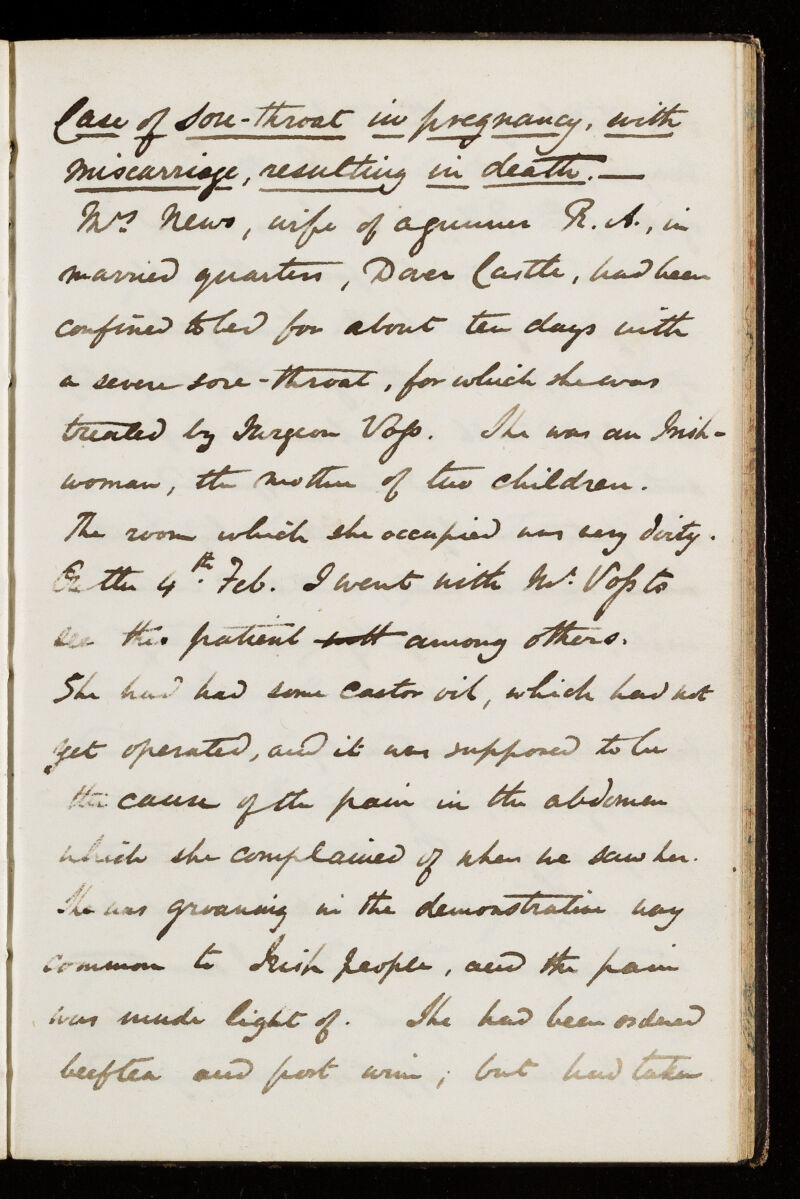 Case of Sore-throat in pregnancy, with
miscarriage, resulting in death. —
Mrs. News, wife of a gunner R.A., in
married quarters, Dover Castle, had been
confined to bed for about ten days with
a severe sore-throat, for which she was
treated by Surgeon Voss. She was an Irish-
woman, the mother of two children.
The room which she occupied was very dirty.
On the 4th. Feb. I went with Mr. Voss to
see this patient among others.
She had had some castor oil, which had not
yet operated, and it was supposed to be
the cause of the pain in the abdomen
which she complained of when we saw her.
She was groaning in the demonstrative way
common to Irish people, and the pain
was made light of. She had been ordered
beeftea and port wine; but had taken